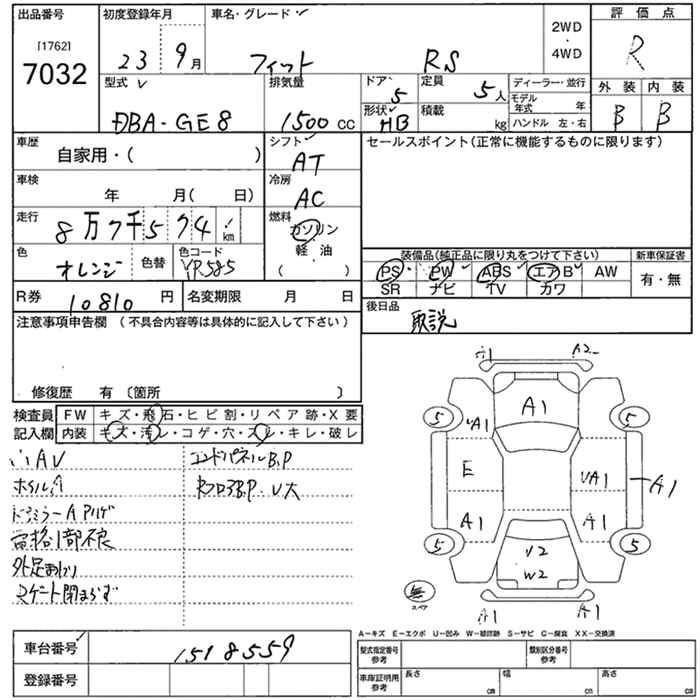 出品番号 初度登録年月 車名・グレード 2WD ・ 4WD 評価点
[1762] 7032 23 9月 フィット RS R
型式 排気量 ドア 5 定員 5人 ディーラー・並行 外装 内装
モデル年式 年
DBA-GE8 1500cc 形状 HB 積載 kg ハンドル 左・右 B B
車歴 自家用・( ) シフト AT セールスポイント(正常に機能するものに限ります)
車検 年 月( 日) 冷房 AC
走行 8万7千5 74 km 燃料 ガソリン・軽・油 ( )
色 オレンジ 色替 色コード YR585 装備品(純正品に限り丸をつけて下さい) 新車保証書
PS PW ABS エアB AW 有・無
R券 10810円 名変期限 月 日 SR ナビ TV カワ
注意事項申告欄 (不具合内容等は具体的に記入して下さい) 後日品 取説
修復歴 有〔箇所 〕
検査員 FW キズ・飛石・ヒビ割・リペア跡・X要
記入欄 内装 キズ・汚レ・コゲ・穴・スレ・キレ・破レ
AV コンドパネルB,P
ホイルA B,P U大
ドアミラーAアルゲ
電格1部不良
外足
スマート閉まらず
A2
5 A1 5
UA1
E UA1 A1
A1 A1
5 U2 5
W2
無 スペア A1 A1
A-キズ E-エクボ U-凹み W-補修跡 S-サビ C-腐食 XX-交換済
車台番号 1518559 型式指定番号 参考 類別区分番号 参考
登録番号 車庫証明用 参考 長さ cm 幅 cm 高さ cm